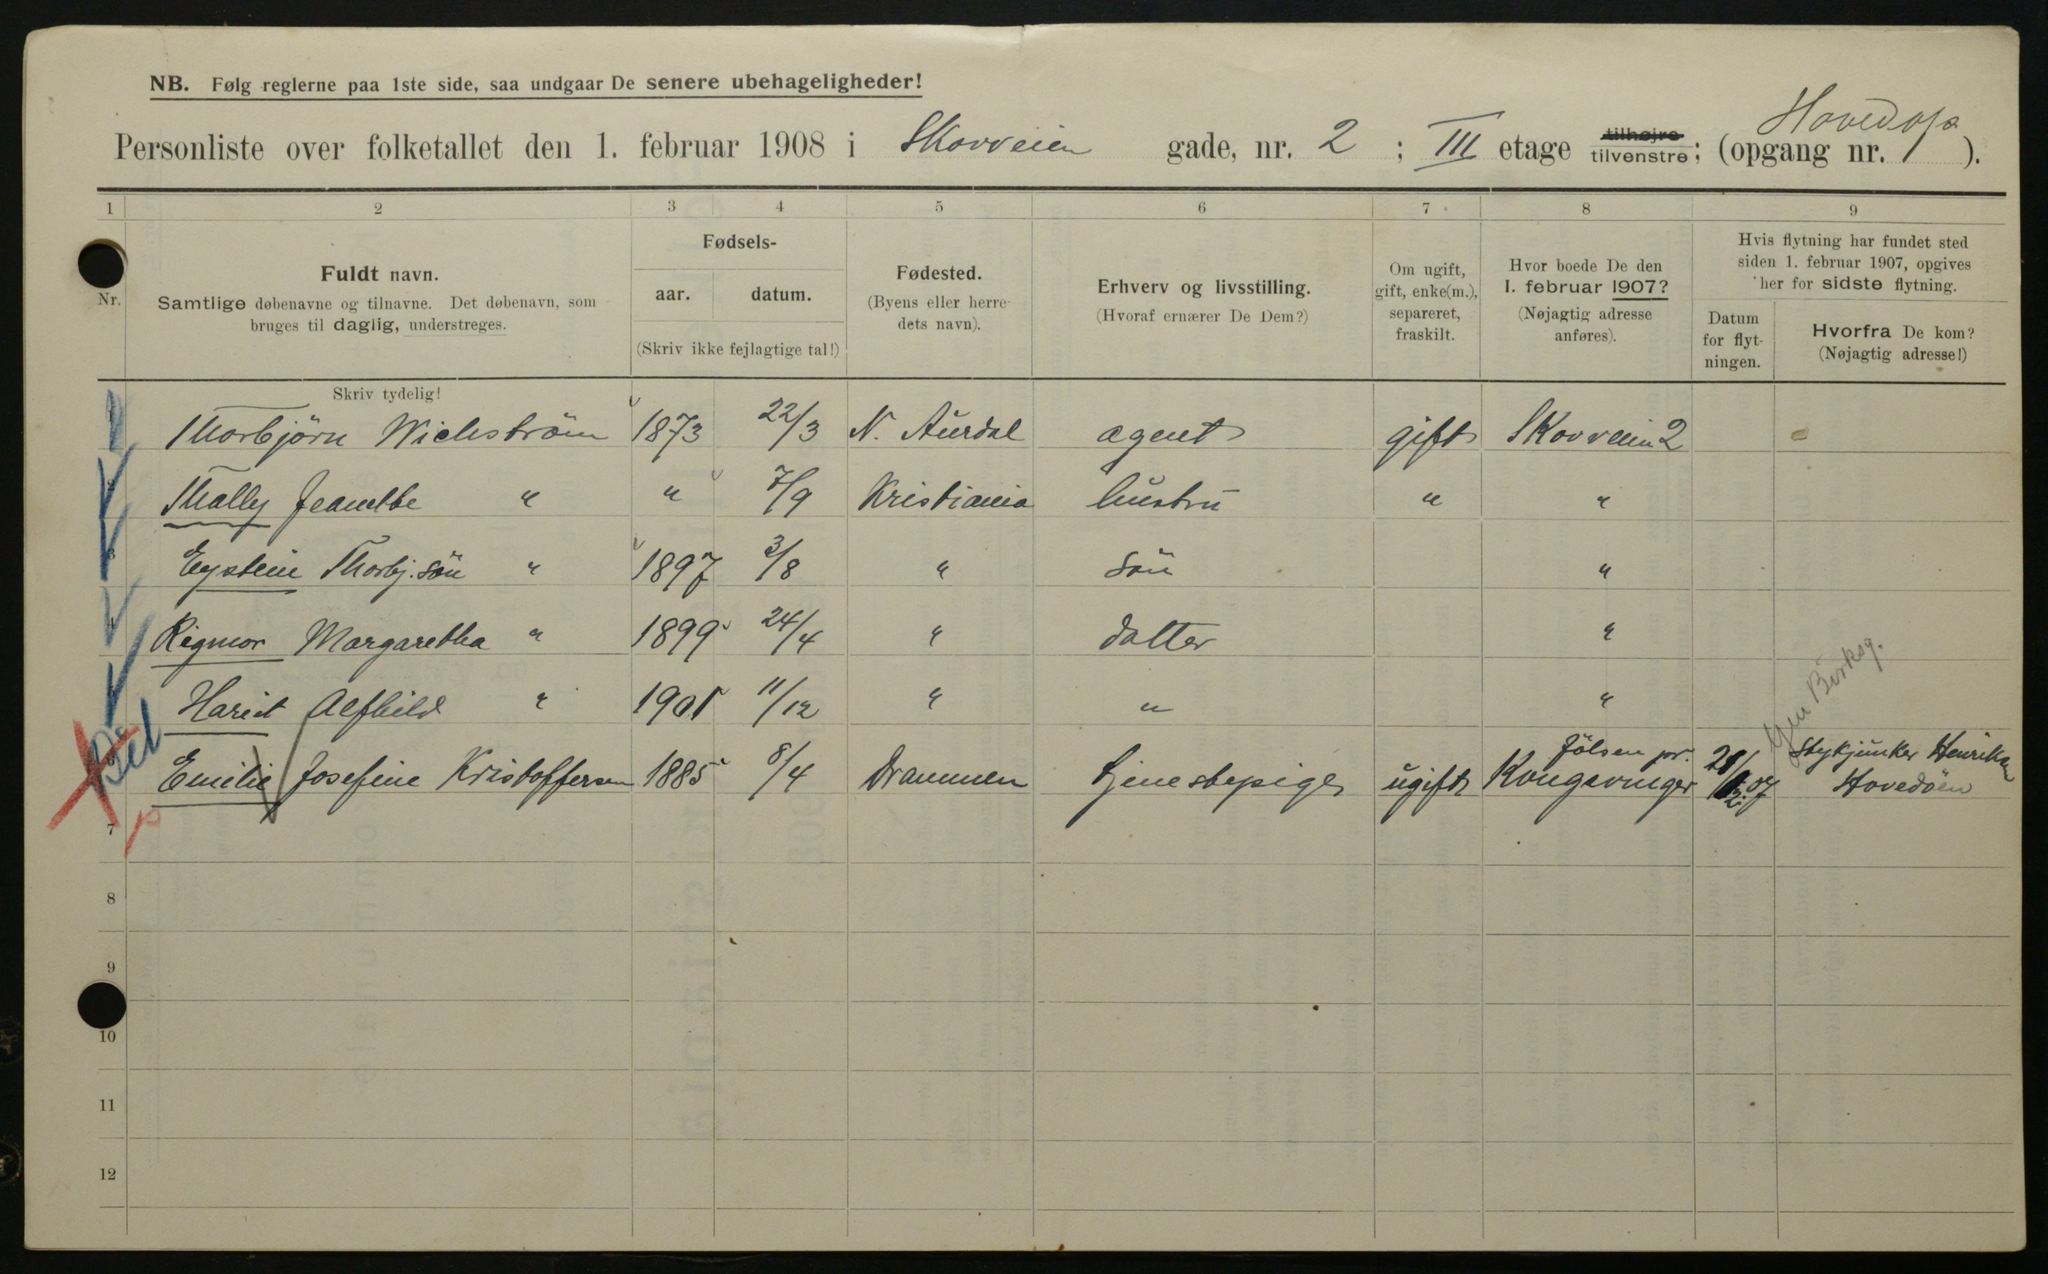 NB. Følg reglerne paa 1ste side, saa undgaar De senere ubehageligheder!
Hovedop
Personliste over folketallet den 1. februar 1908 i Skovveien gade, nr. 2 ; III etage tilhøjre tilvenstre; (opgang nr. 1 ).
1 2 3 4 5 6 7 8 9
Nr.
Fuldt navn.
Samtlige døbenavne og tilnavne. Det døbenavn, som
bruges til daglig, understreges.
Skriv tydelig!
Fødsels-
aar. datum.
(Skriv ikke fejlagtige tal!)
Fødested.
(Byens eller herre-
dets navn).
Erhverv og livsstilling.
(Hvoraf ernærer De Dem?)
Om ugift,
gift, enke(m.),
separeret,
fraskilt.
Hvor boede De den
1. februar 1907?
(Nøjagtig adresse
anføres).
Hvis flytning har fundet sted
siden 1. februar 1907, opgives
her for sidste flytning.
Datum
for flyt-
ningen.
Hvorfra De kom?
(Nøjagtig adresse!)
1 Thorbjörn Wichström 1873 22/3 N. Aurdal agent gift Skovveien 2
2 Thally " " 7/9 Kristiania hustru " "
3 Eystein Thorbj.sön " 1897 3/8 " sön "
4 Rigmor Margaretha " 1899 24/4 " datter "
Harit Alfhild " 1901 11/12 " " "
Emilie Josefine Kristoffersen 1885 8/4 Drammen tjenestepige ugift Jölsen pr. Kongsvinger 07 Stykjunker Henriksen Hovedöen
7
8
9
10
11
12